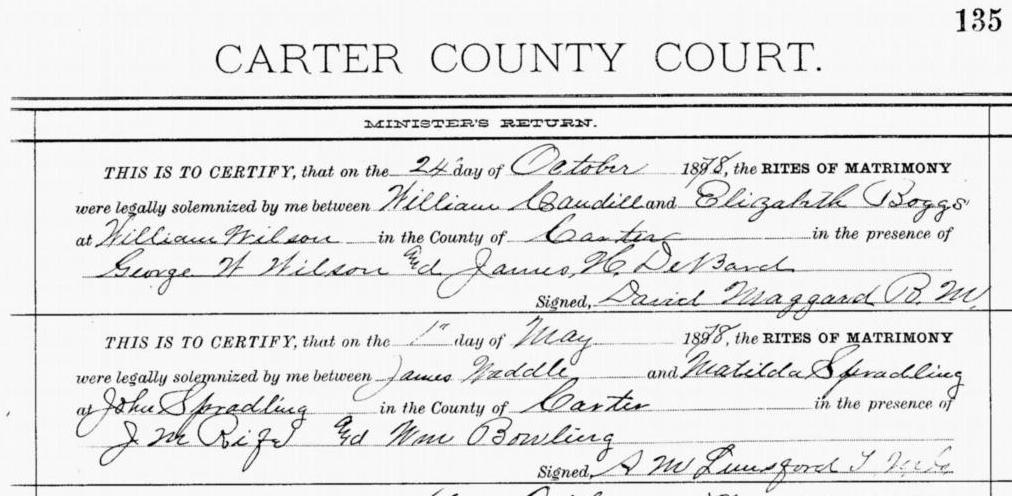 135
CARTER COUNTY COURT.
MINISTER'S RETURN.
THIS IS TO CERTIFY, that on the 24" day of October 1878, the RITES OF MATRIMONY
were legally solemnized by me between William Caudill and Elizabeth Boggs
at William Wilson in the County of Carter in the presence of
George W Wilson and James H. DeBard
Signed, David Maggard B. M.
THIS IS TO CERTIFY, that on the 1" day of May 1878, the RITES OF MATRIMONY
were legally solemnized by me between James Waddle and Matilda Spradling
at John Spradling in the County of Carter in the presence of
J M Rife and Wm Bowling
Signed, S M Lunsford